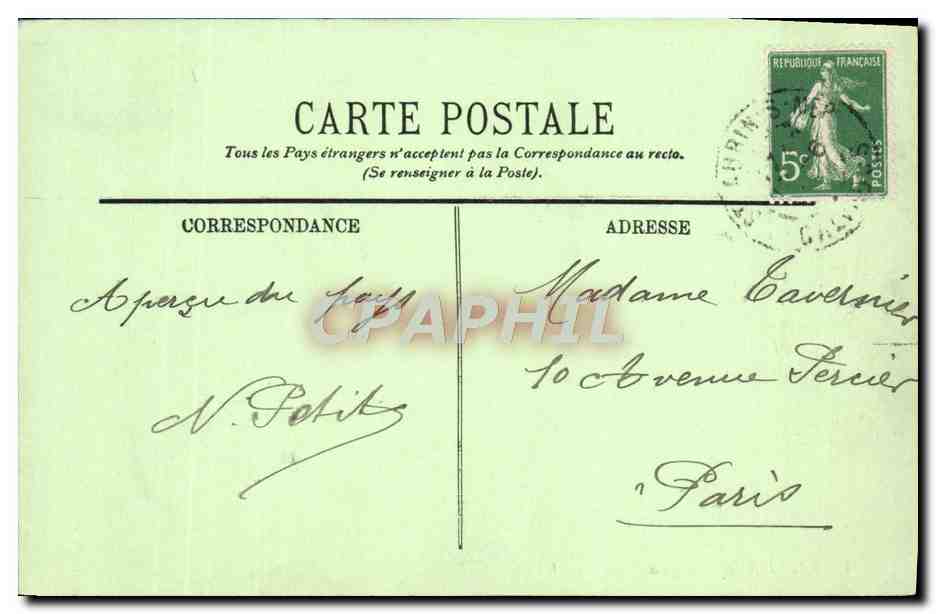 RÉPUBLIQUE FRANÇAISE
5c
POSTES
CALVADOS
CARTE POSTALE
Tous les Pays étrangers n'acceptent pas la Correspondance au recto.
(Se renseigner à la Poste).
CORRESPONDANCE
ADRESSE
Aperçu du pays
N. Petit
Madame Tavernier
10 Avenue Percier
Paris
CPAPHIL